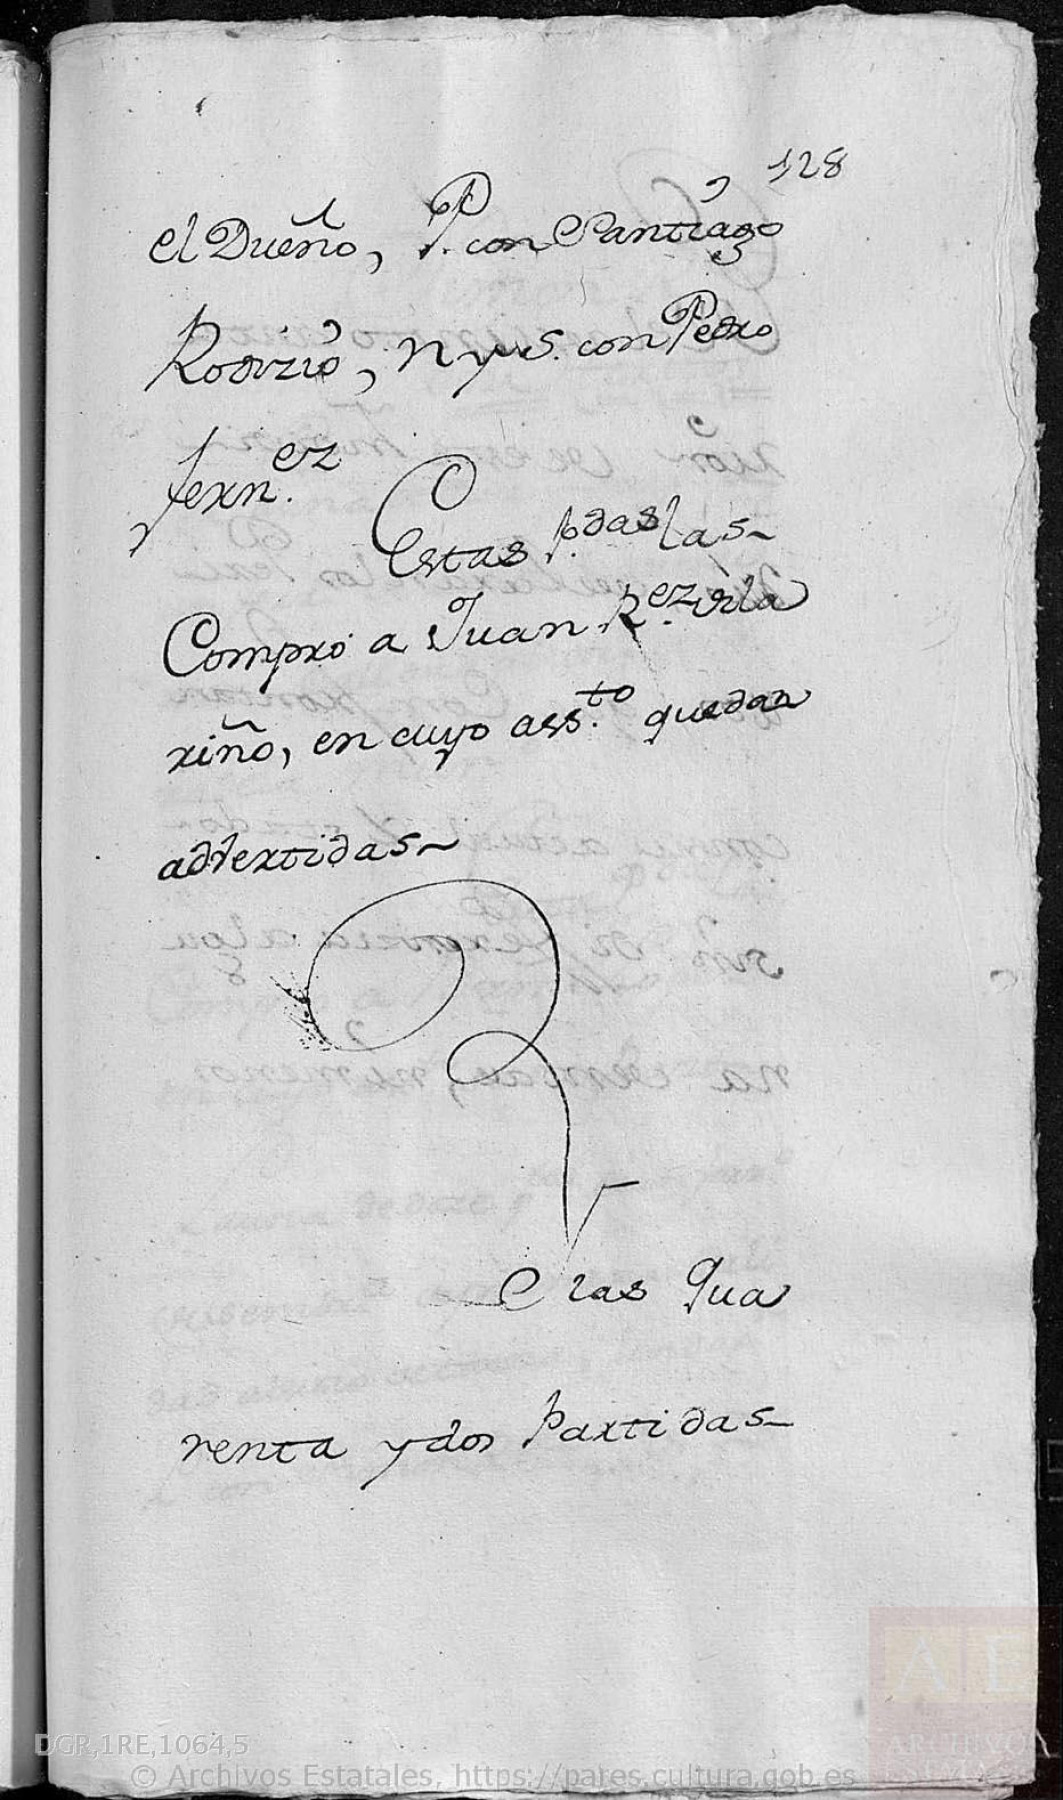 128
el Dueño, P. con Santiago
Rodrizio, N y S. con Pedro
fern.ez
Estas p.das las
Compro a Juan R.ez Vila
riño, en cuyo ass.to quedan
advertidas
las qua
renta y dos Partidas
DGR,1RE,1064,5
© Archivos Estatales, https://pares.cultura.gob.es
AE
ARCHIVOS